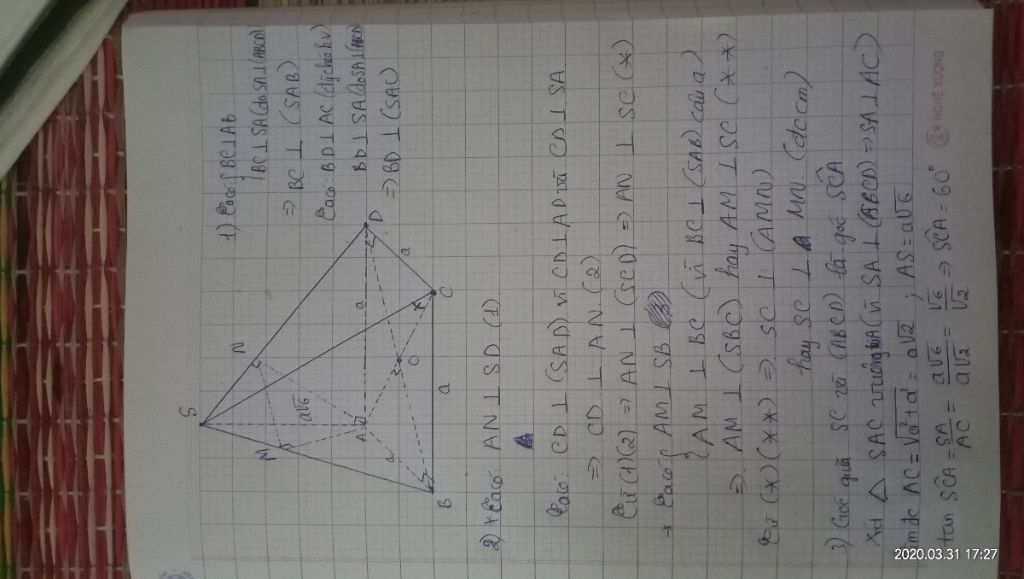 1) Ta có: { BC ⊥ AB
BC ⊥ SA (do SA ⊥ (ABCD)
⇒ BC ⊥ (SAB)
Ta có: BD ⊥ AC (đ/chéo h.v)
BD ⊥ SA (do SA ⊥ (ABCD)
⇒ BD ⊥ (SAC)
S
M
N
a√6
A
a
D
a
a
O
B
a
C
2) * Ta có: AN ⊥ SD (1)
Ta có: CD ⊥ (SAD) vì CD ⊥ AD và CD ⊥ SA
⇒ CD ⊥ AN (2)
Từ (1)(2) ⇒ AN ⊥ (SCD) ⇒ AN ⊥ SC (*)
* Ta có: { AM ⊥ SB
AM ⊥ BC (vì BC ⊥ (SAB) câu a)
⇒ AM ⊥ (SBC) hay AM ⊥ SC (**)
Từ (*)(**) ⇒ SC ⊥ (AMN)
hay SC ⊥ MN. (đccm)
3) Góc giữa SC và (ABCD) là góc SĈA
Xét △ SAC vuông tại A (vì SA ⊥ (ABCD) ⇒ SA ⊥ AC)
Tính đc AC = √a²+a² = a√2 ; AS = a√6
tan SĈA = SA/AC = a√6/a√2 = √6/√2 ⇒ SĈA = 60°
NGHÊ HƯƠNG
2020.03.31 17:27